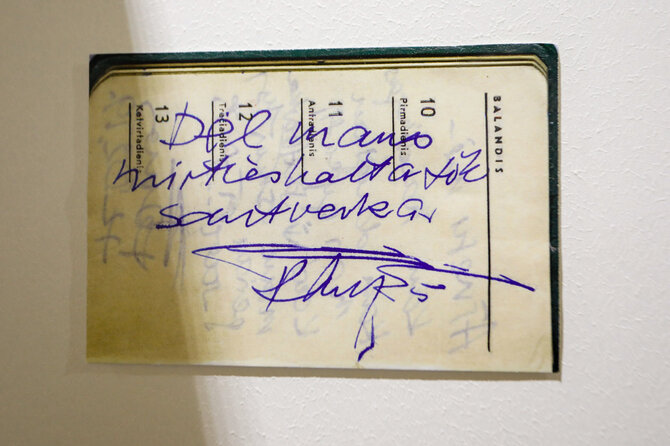 BALANDIS
10
Pirmadienis
11
Antradienis
12
Trečiadienis
13
Ketvirtadienis
Dėl mano
mirties kalta tik
santvarka